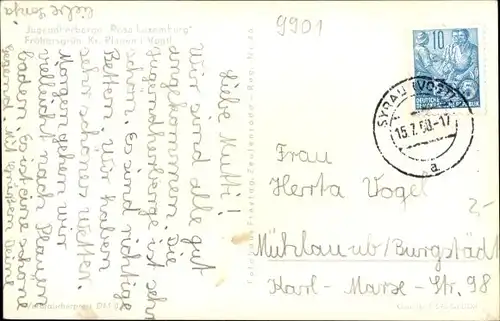 9901
Jugendherberge "Rosa Luxemburg"
Frobersgrün, Kr. Plauen i. Vogtl.
Liebe Mutti!
Wir sind alle gut
angekommen. Die
Jugendherberge ist sehr
schön. Es sind richtige
Betten. Wir haben
sehr schönes Wetter.
Morgen gehen wir
vielleicht nach Plauen
baden. Es ist eine schöne
Gegend. Mit Grüßen Deine
liebe
10
DEUTSCHE
SYRAU (VOGTL)
15.7.60.-17
a
Frau
Herta Vogel
Mühlau üb/Burgstädt
Karl-Marx-Str. 98
2,-
Verbraucherpreis DM